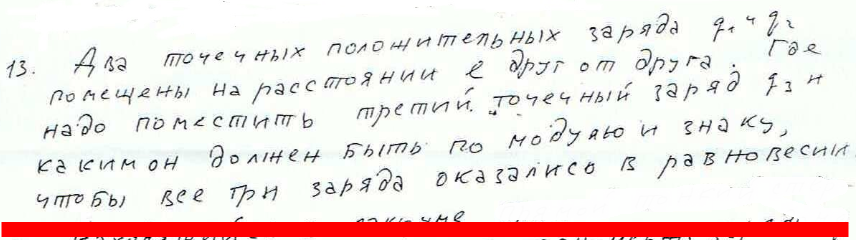 13. Два точечных положительных заряда q₁ и q₂
помещены на расстоянии l друг от друга. Где
надо поместить третий точечный заряд q₃ и
каким он должен быть по модулю и знаку,
чтобы все три заряда оказались в равновесии.